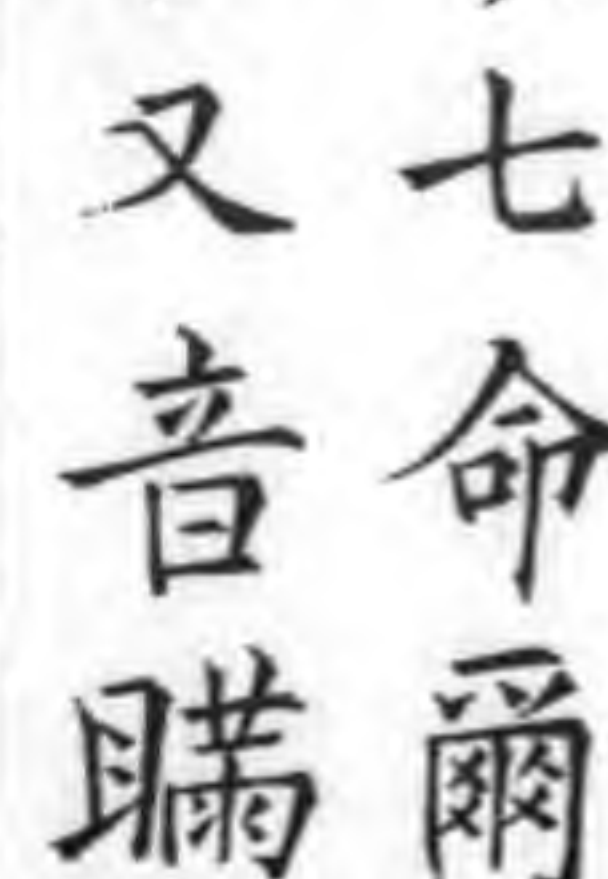 七命爾
又音瞞